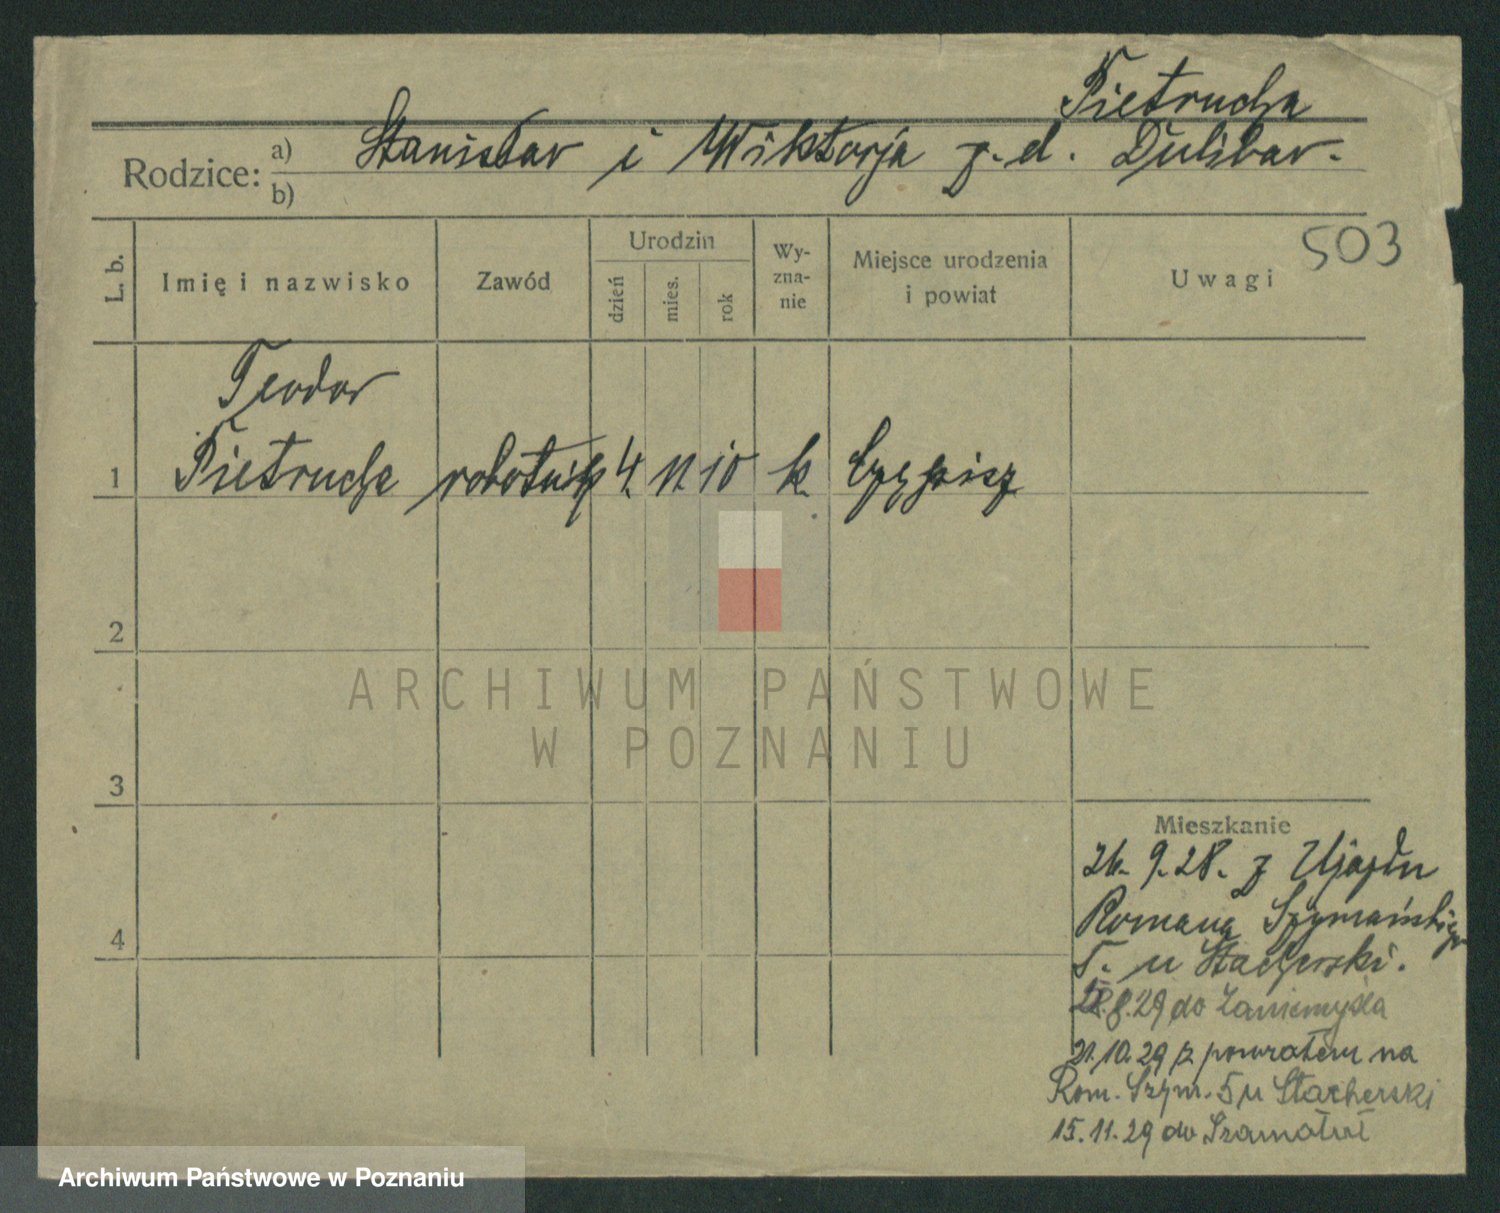 Pietrucha
Rodzice: a) Stanisław i Wiktorja z. d. Dulibar.
b)
503
L. b. Imię i nazwisko Zawód Urodzin dzień mies. rok Wy-zna-nie Miejsce urodzenia i powiat Uwagi
Teodor
1 Pietrucha robotnik 4. 11. 10 k.
2
ARCHIWUM PAŃSTWOWE
W POZNANIU
3
Mieszkanie
26. 9. 28. z Ujazdu
4 Romana Szymańskiego
5. u Stacherski.
28.8.29 do Zaniemyśla
21.10.29 z powrotem na
Rom. Szym. 5 u Stacherski
15.11.29 do Szamotuł
Archiwum Państwowe w Poznaniu